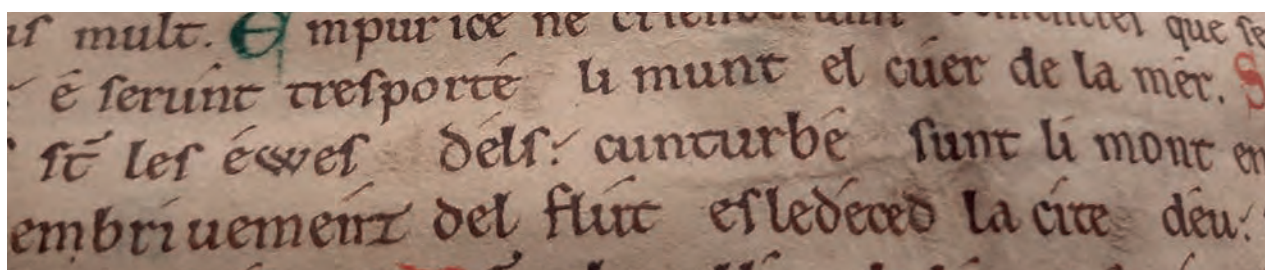 uſ mult. E mpur ice ne que ſe
é ſerunt treſporté li munt el cúer de la mér. S
ſt̄ leſ éwes délſ: cunturbé ſunt li mont en
embriuement del flút eſledéced la cité déu: